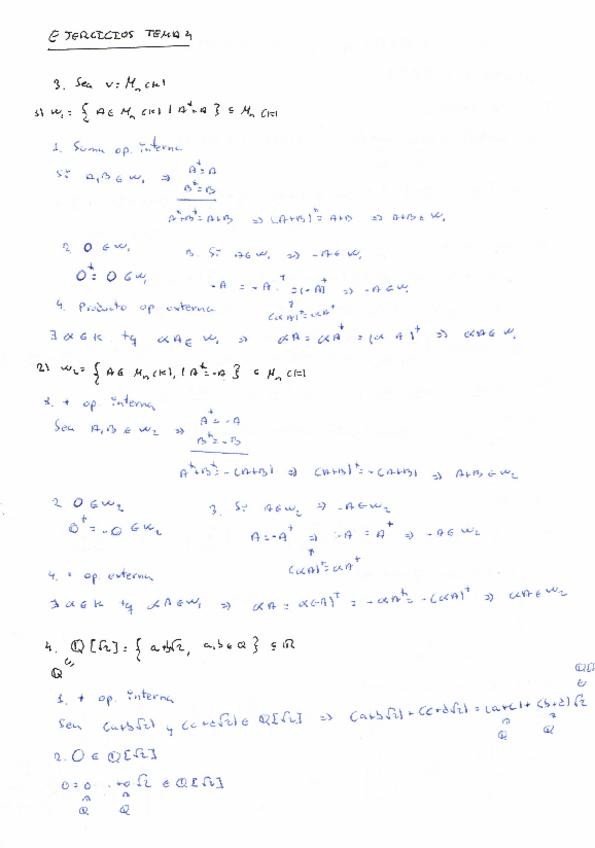 EJERCICIOS TEMA 4
3. Sea V = Mn(K)
1) W₁ = { A ∈ Mn(K) | Aᵗ = A } ⊆ Mn(K)
1. Suma op. interna
Si A, B ∈ W₁ ⇒ Aᵗ = A
Bᵗ = B
Aᵗ + Bᵗ = A + B ⇒ (A+B)ᵗ = A+B ⇒ A+B ∈ W₁
2. 0 ∈ W₁ 3. Si A ∈ W₁ ⇒ -A ∈ W₁
0ᵗ = 0 ∈ W₁ -A = -Aᵗ = (-A)ᵗ ⇒ -A ∈ W₁
(αA)ᵗ = αAᵗ
4. Producto op. externa
∃ α ∈ K tq αA ∈ W₁ ⇒ αA = αAᵗ = (αA)ᵗ ⇒ αA ∈ W₁
2) W₂ = { A ∈ Mn(K), | Aᵗ = -A } ⊆ Mn(K)
1. + op. interna
Sea A, B ∈ W₂ ⇒ Aᵗ = -A
Bᵗ = -B
Aᵗ + Bᵗ = -(A+B) ⇒ (A+B)ᵗ = -(A+B) ⇒ A+B ∈ W₂
2. 0 ∈ W₂ 3. Si A ∈ W₂ ⇒ -A ∈ W₂
0ᵗ = -0 ∈ W₂ A = -Aᵗ ⇒ -A = Aᵗ ⇒ -A ∈ W₂
(αA)ᵗ = αAᵗ
4. · op. externa
∃ α ∈ K tq αA ∈ W₁ ⇒ αA = α(-A)ᵗ = -αAᵗ = -(αA)ᵗ ⇒ αA ∈ W₂
4. Q[√2] = { a+b√2, a,b ∈ Q } ⊆ R
Q
1. + op. interna
Sea (a+b√2) y (c+d√2) ∈ Q[√2] ⇒ (a+b√2) + (c+d√2) = (a+c) + (b+d)√2
Q Q
2. 0 ∈ Q[√2]
0 = 0 + 0√2 ∈ Q[√2]
Q Q